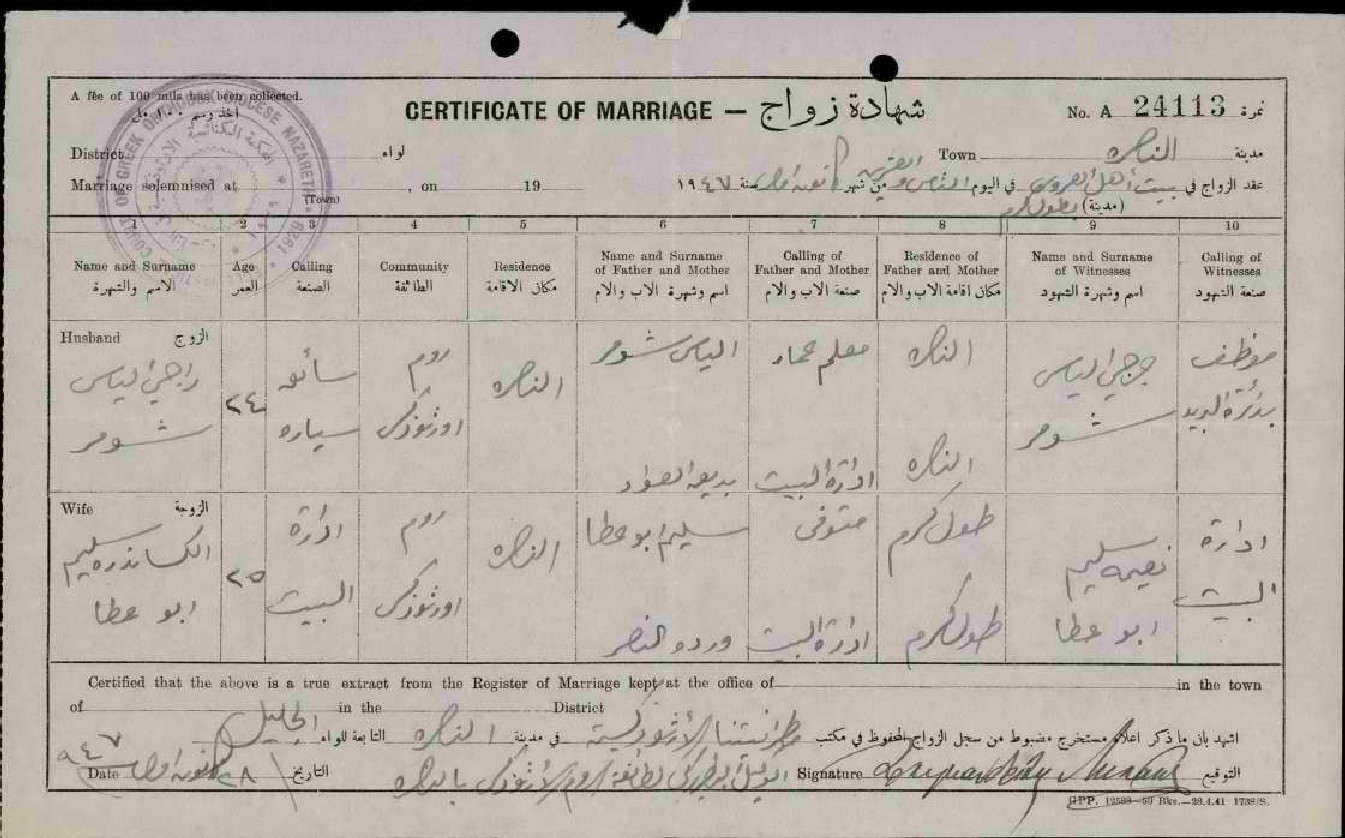 A fee of 100 mils has been collected.
CERTIFICATE OF MARRIAGE — شهادة زواج
No. A 24113 نمرة
District لواء
Town الناصره مدينة
Marriage solemnised at , on 19
(Town)
عقد الزواج في بيت أهل العروس في اليوم الثامن والعشرين من شهر كانون اول سنة ١٩٤٧
(مدينة) بطولكرم
1 2 3 4 5 6 7 8 9 10
Name and Surname الاسم والشهرة
Age العمر
Calling الصنعة
Community الطائفة
Residence مكان الاقامة
Name and Surname of Father and Mother اسم وشهرة الاب والام
Calling of Father and Mother صنعة الاب والام
Residence of Father and Mother مكان اقامة الاب والام
Name and Surname of Witnesses اسم وشهرة الشهود
Calling of Witnesses صنعة الشهود
Husband الزوج
راجي الياس
شومر
٢٤
سائق
سياره
روم
اورثوذكس
الناصره
الياس شومر
معلم عمار
الناصره
ادارة البيت
الناصره
جرجي الياس
شومر
موظف
بدائرة البريد
Wife الزوجة
الكساندره سليم
ابو عطا
٢٥
ادارة
البيت
روم
اورثوذكس
الناصره
سليم ابو عطا
متوفى
طولكرم
ورده
ادارة البيت
طولكرم
نعيمه سليم
ابو عطا
ادارة
البيت
Certified that the above is a true extract from the Register of Marriage kept at the office of in the town
of in the District
اشهد بان ما ذكر اعلاه مستخرج مضبوط من سجل الزواج المحفوظ في مكتب مطرانيتنا الأرثوذكسية في مدينة الناصره التابعة للواء الجليل
Date ٢٨ كانون اول ٩٤٧ التاريخ
الروم الأرثوذكس بالناصره Signature التوقيع
GPP. 12588—50 Bks.—28.4.41 1738/S.